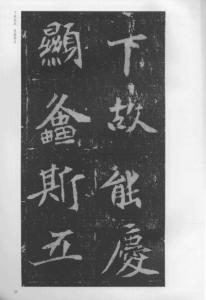 下故能慶
顯龕斯五